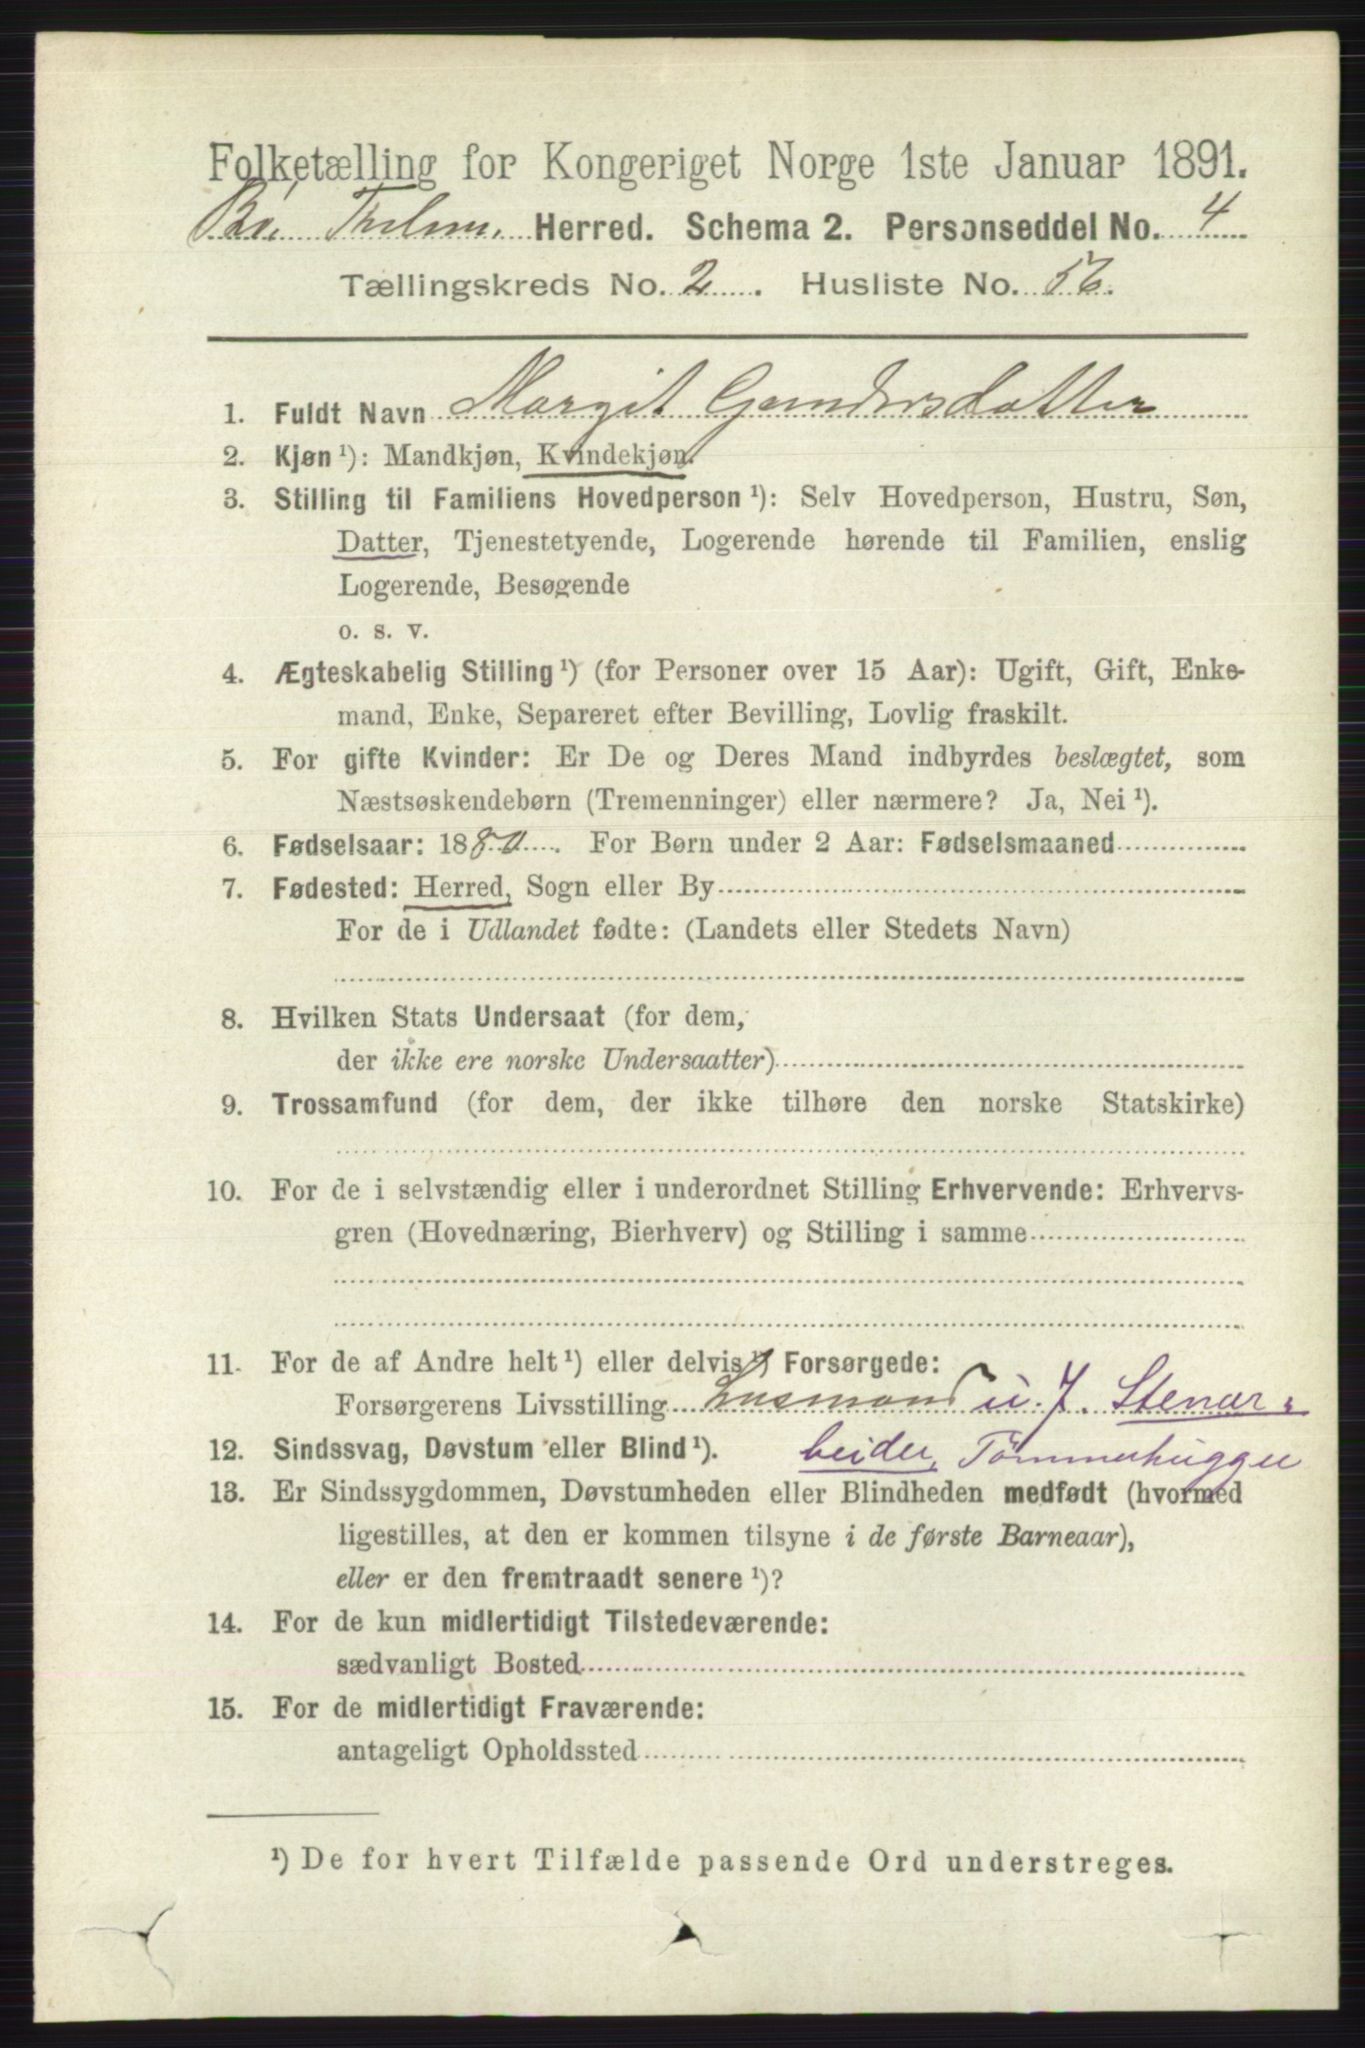 Folketælling for Kongeriget Norge 1ste Januar 1891.
Bø. Thelem. Herred. Schema 2. Personseddel No. 4
Tællingskreds No. 2. Husliste No. 56.
1. Fuldt Navn Margit Gundersdatter
2. Kjøn ¹): Mandkjøn, Kvindekjøn.
3. Stilling til Familiens Hovedperson ¹): Selv Hovedperson, Hustru, Søn,
Datter, Tjenestetyende, Logerende hørende til Familien, enslig
Logerende, Besøgende
o. s. v.
4. Ægteskabelig Stilling ¹) (for Personer over 15 Aar): Ugift, Gift, Enke-
mand, Enke, Separeret efter Bevilling, Lovlig fraskilt.
5. For gifte Kvinder: Er De og Deres Mand indbyrdes beslægtet, som
Næstsøskendebørn (Tremenninger) eller nærmere? Ja, Nei ¹).
6. Fødselsaar: 1880. For Børn under 2 Aar: Fødselsmaaned
7. Fødested: Herred, Sogn eller By
For de i Udlandet fødte: (Landets eller Stedets Navn)
8. Hvilken Stats Undersaat (for dem,
der ikke ere norske Undersaatter)
9. Trossamfund (for dem, der ikke tilhøre den norske Statskirke)
10. For de i selvstændig eller i underordnet Stilling Erhvervende: Erhvervs-
gren (Hovednæring, Bierhverv) og Stilling i samme
11. For de af Andre helt ¹) eller delvis ¹) Forsørgede:
Forsørgerens Livsstilling Husmand u. J. Stenar-
12. Sindssvag, Døvstum eller Blind ¹). beider, Tømmerhugger
13. Er Sindssygdommen, Døvstumheden eller Blindheden medfødt (hvormed
ligestilles, at den er kommen tilsyne i de første Barneaar),
eller er den fremtraadt senere ¹)?
14. For de kun midlertidigt Tilstedeværende:
sædvanligt Bosted
15. For de midlertidigt Fraværende:
antageligt Opholdssted
¹) De for hvert Tilfælde passende Ord understreges.